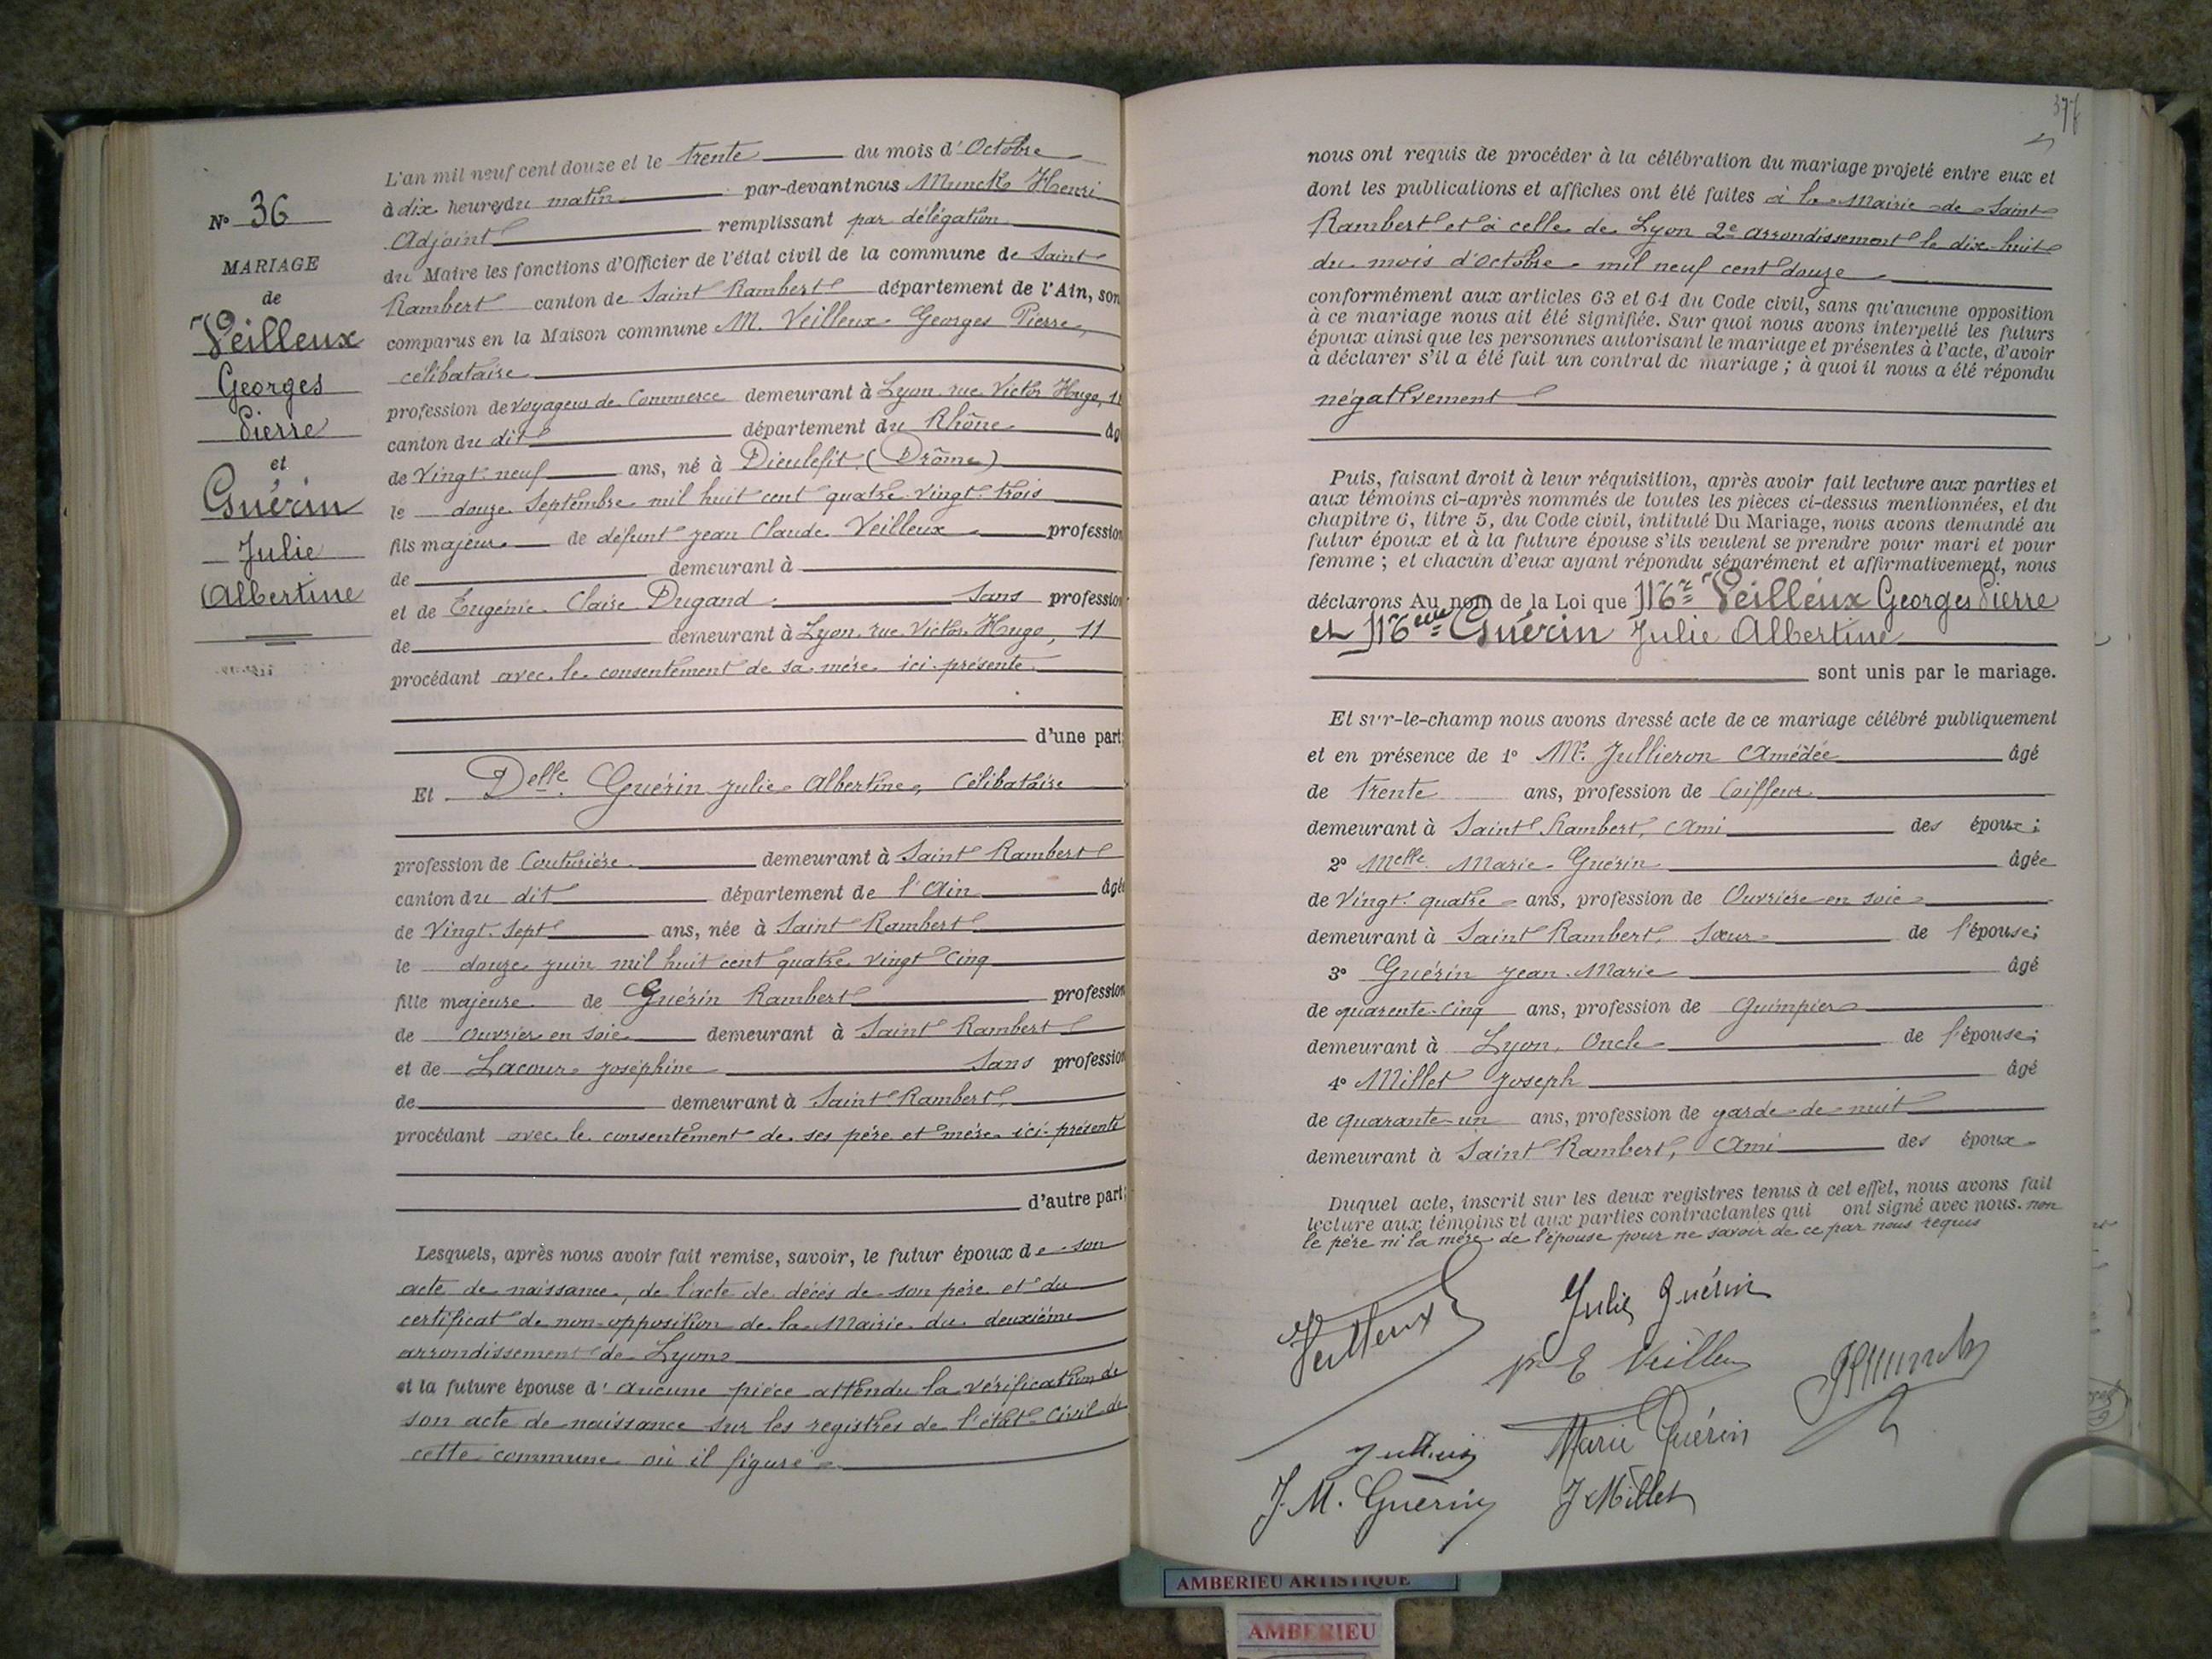 N° 36
MARIAGE
de
Veilleux
Georges
Pierre
et
Guérin
Julie
Albertine
L'an mil neuf cent douze et le trente du mois d'Octobre
à dix heures du matin par-devant nous Munck Henri
Adjoint remplissant par délégation
du Maire les fonctions d'Officier de l'état civil de la commune de Saint
Rambert canton de Saint Rambert département de l'Ain, son
comparus en la Maison commune M. Veilleux Georges Pierre,
célibataire
profession de voyageur de Commerce demeurant à Lyon rue Victor Hugo, 11
canton du dit département du Rhône âg
de Vingt-neuf ans, né à Dieulefit (Drôme)
le douze Septembre mil huit cent quatre-vingt-trois
fils majeur de défunt Jean Claude Veilleux profession
de demeurant à
et de Eugénie Claire Dugand Sans profession
de demeurant à Lyon rue Victor Hugo, 11
procédant avec le consentement de sa mère ici présente
d'une part;
Et Delle Guérin Julie Albertine, Célibataire
profession de Couturière demeurant à Saint Rambert
canton du dit département de l'Ain âgée
de Vingt-sept ans, née à Saint Rambert
le douze juin mil huit cent quatre vingt cinq
fille majeure de Guérin Rambert profession
de ouvrier en soie demeurant à Saint Rambert
et de Lacour Joséphine Sans profession
de demeurant à Saint-Rambert,
procédant avec le consentement de ses père et mère ici présents
d'autre part;
Lesquels, après nous avoir fait remise, savoir, le futur époux de son
acte de naissance, de l'acte de décès de son père et du
certificat de non-opposition de la Mairie du deuxième
arrondissement de Lyon
et la future épouse d'aucune pièce attendu la vérification de
son acte de naissance sur les registres de l'état-Civil de
cette commune où il figure
377
nous ont requis de procéder à la célébration du mariage projeté entre eux et
dont les publications et affiches ont été faites à la Mairie de Saint
Rambert et à celle de Lyon 2e arrondissement le dix-huit
du mois d'Octobre mil neuf cent douze
conformément aux articles 63 et 64 du Code civil, sans qu'aucune opposition
à ce mariage nous ait été signifiée. Sur quoi nous avons interpellé les futurs
époux ainsi que les personnes autorisant le mariage et présentes à l'acte, d'avoir
à déclarer s'il a été fait un contrat de mariage ; à quoi il nous a été répondu
négativement
Puis, faisant droit à leur réquisition, après avoir fait lecture aux parties et
aux témoins ci-après nommés de toutes les pièces ci-dessus mentionnées, et du
chapitre 6, titre 5, du Code civil, intitulé Du Mariage, nous avons demandé au
futur époux et à la future épouse s'ils veulent se prendre pour mari et pour
femme ; et chacun d'eux ayant répondu séparément et affirmativement, nous
déclarons Au nom de la Loi que Mr Veilleux Georges Pierre
et Melle Guérin Julie Albertine
sont unis par le mariage.
Et sur-le-champ nous avons dressé acte de ce mariage célébré publiquement
et en présence de 1° Mr. Jullieron Amédée âgé
de trente ans, profession de Coiffeur
demeurant à Saint Rambert, Ami des époux;
2° Melle Marie Guérin âgée
de Vingt-quatre ans, profession de Ouvrière en soie
demeurant à Saint Rambert, Sœur de l'épouse;
3° Guérin Jean-Marie âgé
de quarente-cinq ans, profession de Guimpier
demeurant à Lyon, Oncle de l'épouse;
4° Millet Joseph âgé
de quarante-un ans, profession de garde-de-nuit
demeurant à Saint Rambert, Ami des époux
Duquel acte, inscrit sur les deux registres tenus à cet effet, nous avons fait
lecture aux témoins et aux parties contractantes qui ont signé avec nous. non
le père ni la mère de l'épouse pour ne savoir de ce par nous requis
Veilleux Julie Guérin
E Veilleux
Marie Guérin
J. M. Guérin J Millet
AMBERIEU ARTISTIQUE
AMBERIEU